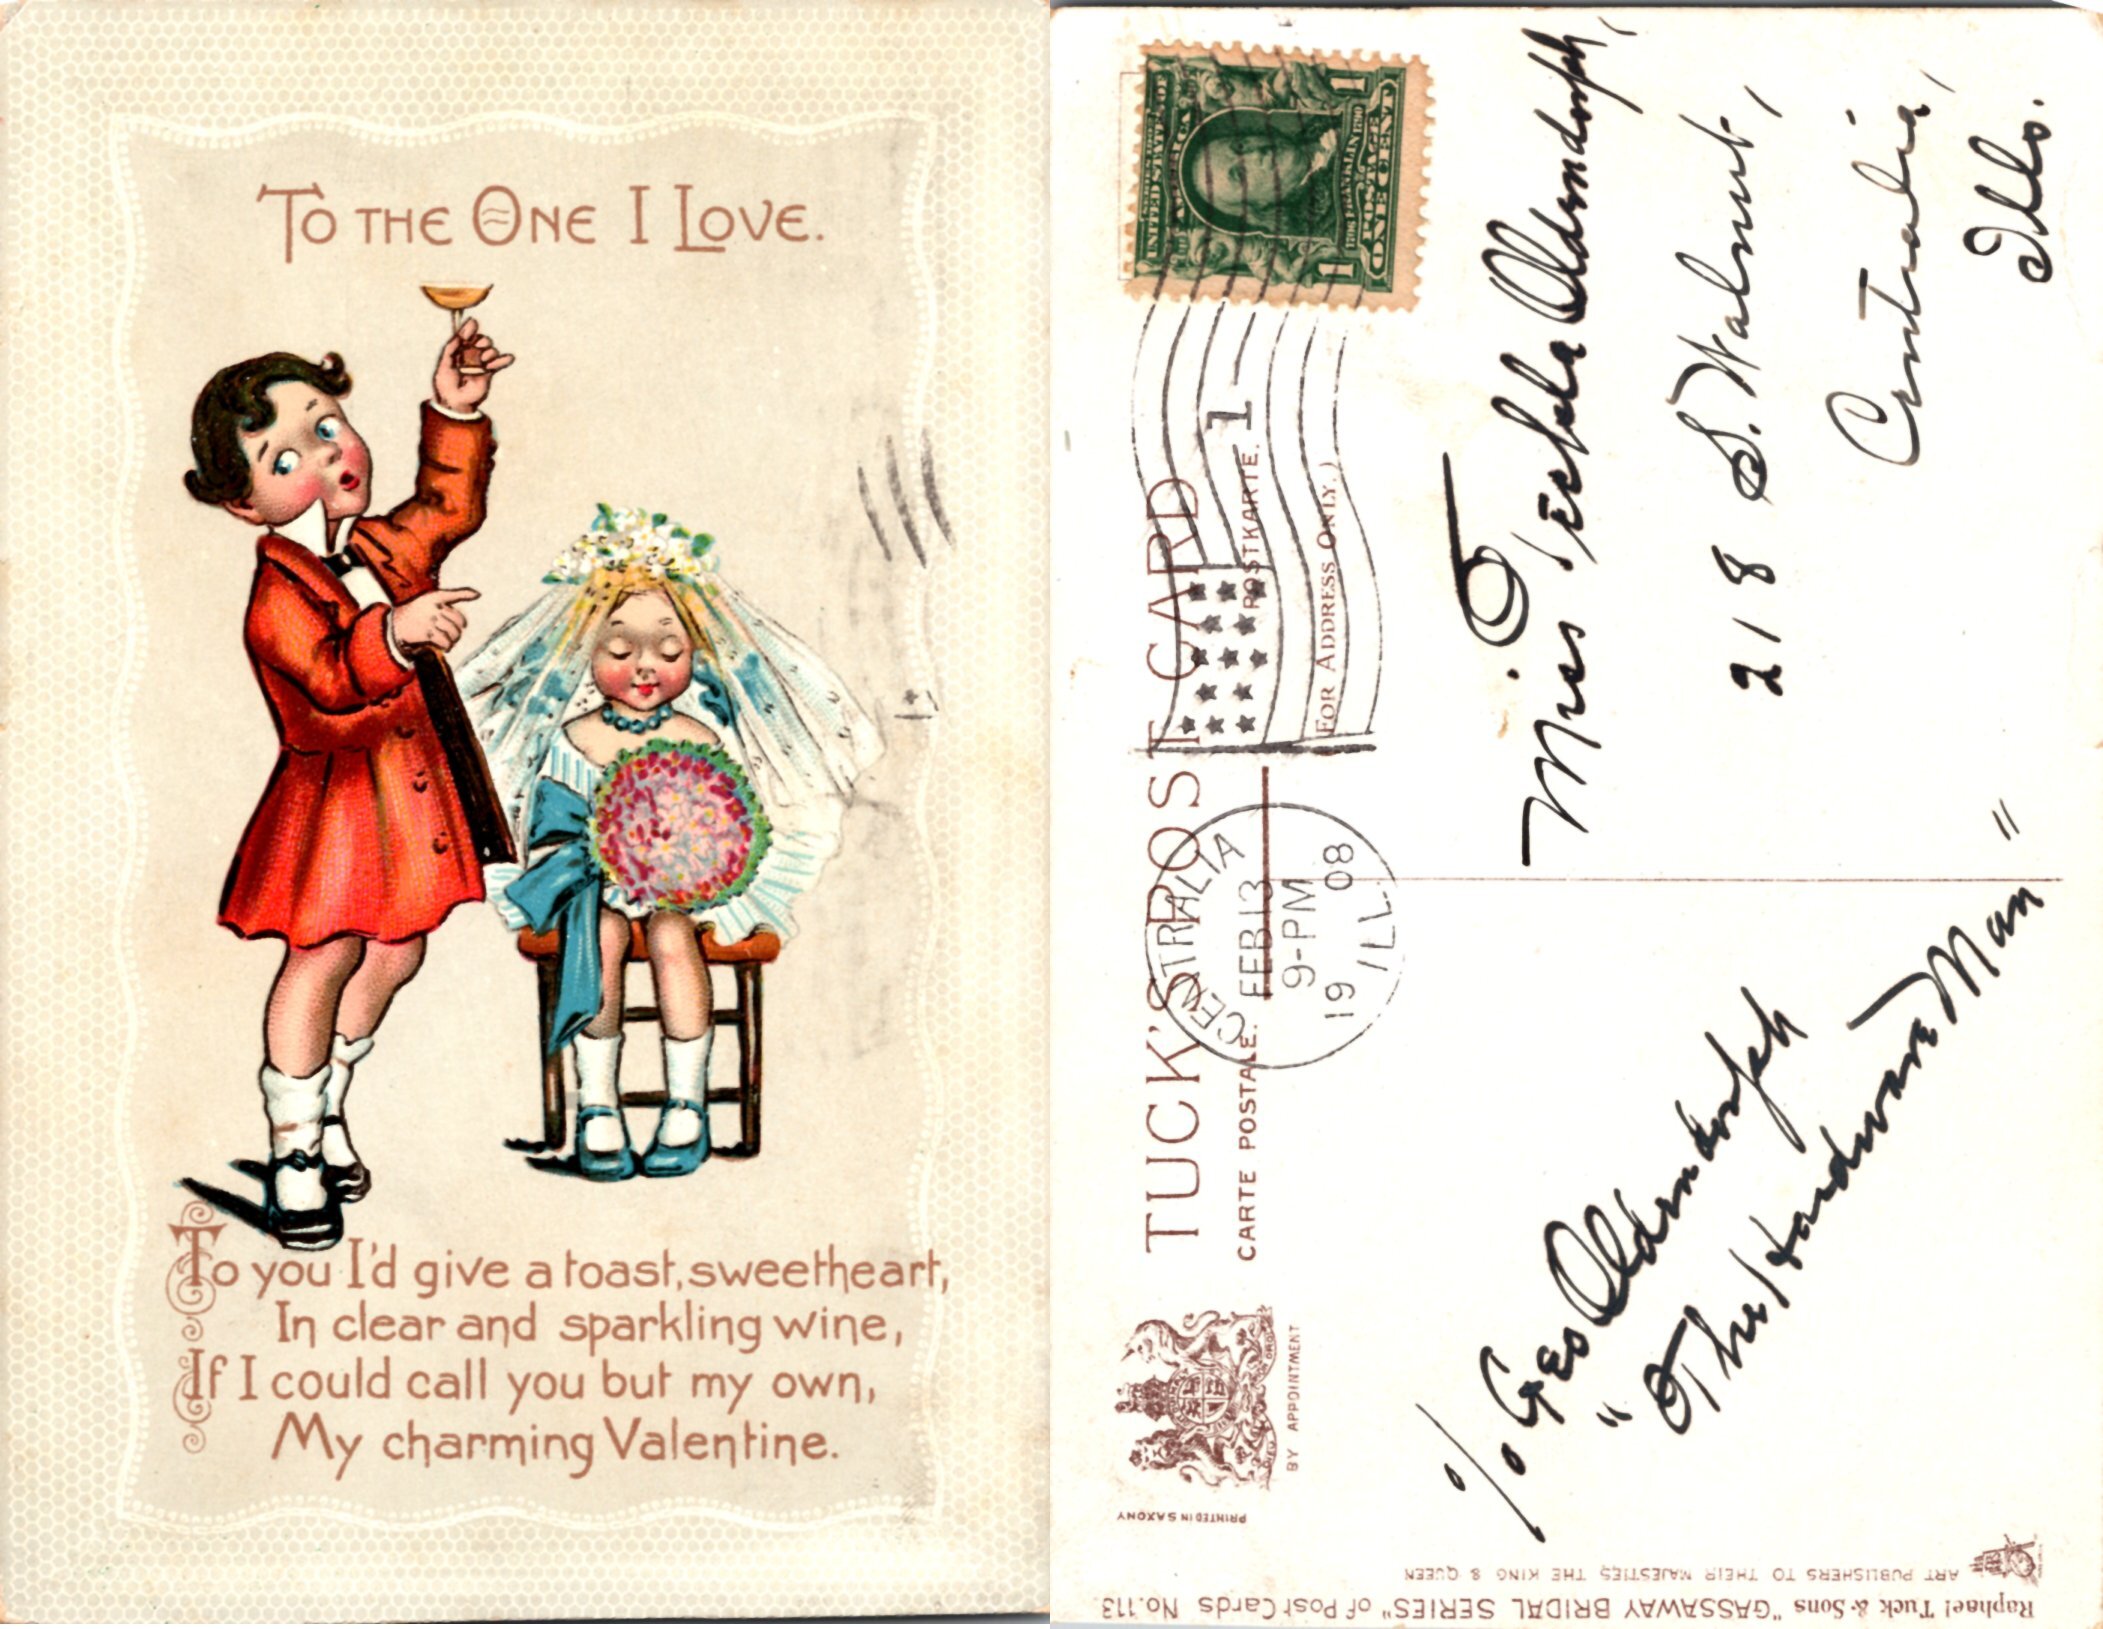 To the One I Love.
To you I'd give a toast, sweetheart,
In clear and sparkling wine,
If I could call you but my own,
My charming Valentine.
TUCK'S POST CARD
CARTE POSTALE. POSTKARTE.
(FOR ADDRESS ONLY.)
BY APPOINTMENT
PRINTED IN SAXONY
UNITED STATES OF AMERICA
1706 FRANKLIN 1790
POSTAGE
1 ONE CENT 1
1
CENTRALIA
FEB 13
9-PM
1908
ILL.
Miss Teckla Oldendorph,
218 S. Walnut,
Centralia,
Ills.
c/o Geo Oldendorph
"The Hardware Man"
Raphael Tuck & Sons "GASSAWAY BRIDAL SERIES" of Post Cards No. 113.
ART PUBLISHERS TO THEIR MAJESTIES THE KING & QUEEN